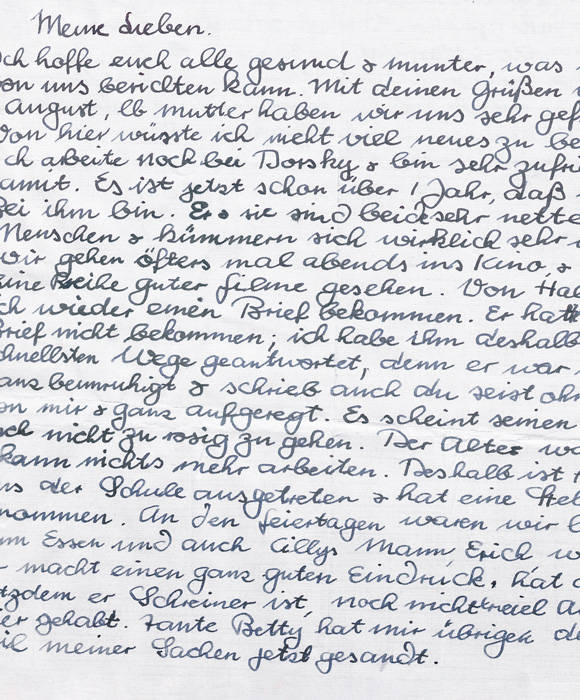 Meine Lieben.
Ich hoffe euch alle gesund & munter, was
von uns berichten kann. Mit deinen Grüßen
August, lb mutter haben wir uns sehr gef
Von hier wüsste ich nicht viel neues zu be
ch arbeite noch bei Dorsky & bin sehr zufri
amit. Es ist jetzt schon über 1 Jahr, daß
bei ihm bin. Er & sie sind beide sehr nette
Menschen & kümmern sich wirklich sehr
wir gehen öfters mal abends ins Kino, &
eine Reihe guter filme gesehen. Von Ha
ch wieder einen Brief bekommen. Er hatt
Brief nicht bekommen; ich habe ihm deshalb
chnellsten Wege geantwortet, denn er war
anz beunruhigt & schrieb auch du seist oh
on mir & ganz aufgeregt. Es scheint seinen
och nicht zu rosig zu gehen. Der Alte
kann nichts mehr arbeiten. Deshalb ist
us der Schule ausgetreten & hat eine Stel
nommen. An den feiertagen waren wir
um Essen und auch Cillys Mann, Erich w
macht einen ganz guten Eindruck, hat
tzdem er Schreiner ist, noch nicht viel A
er gehabt. Tante Betty hat mir übrigen de
eil meiner Sachen jetzt gesandt.